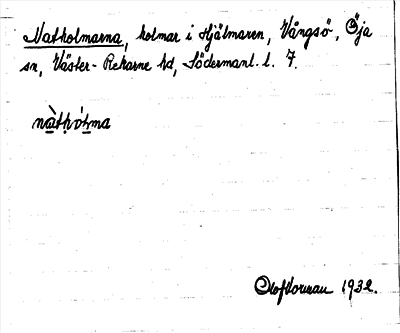 Natholmarna, holmar i Hjälmaren, Vångsö, Öja
sn, Väster-Rekarne hd, Södermanl. l. 7.
nàthólma
1932.